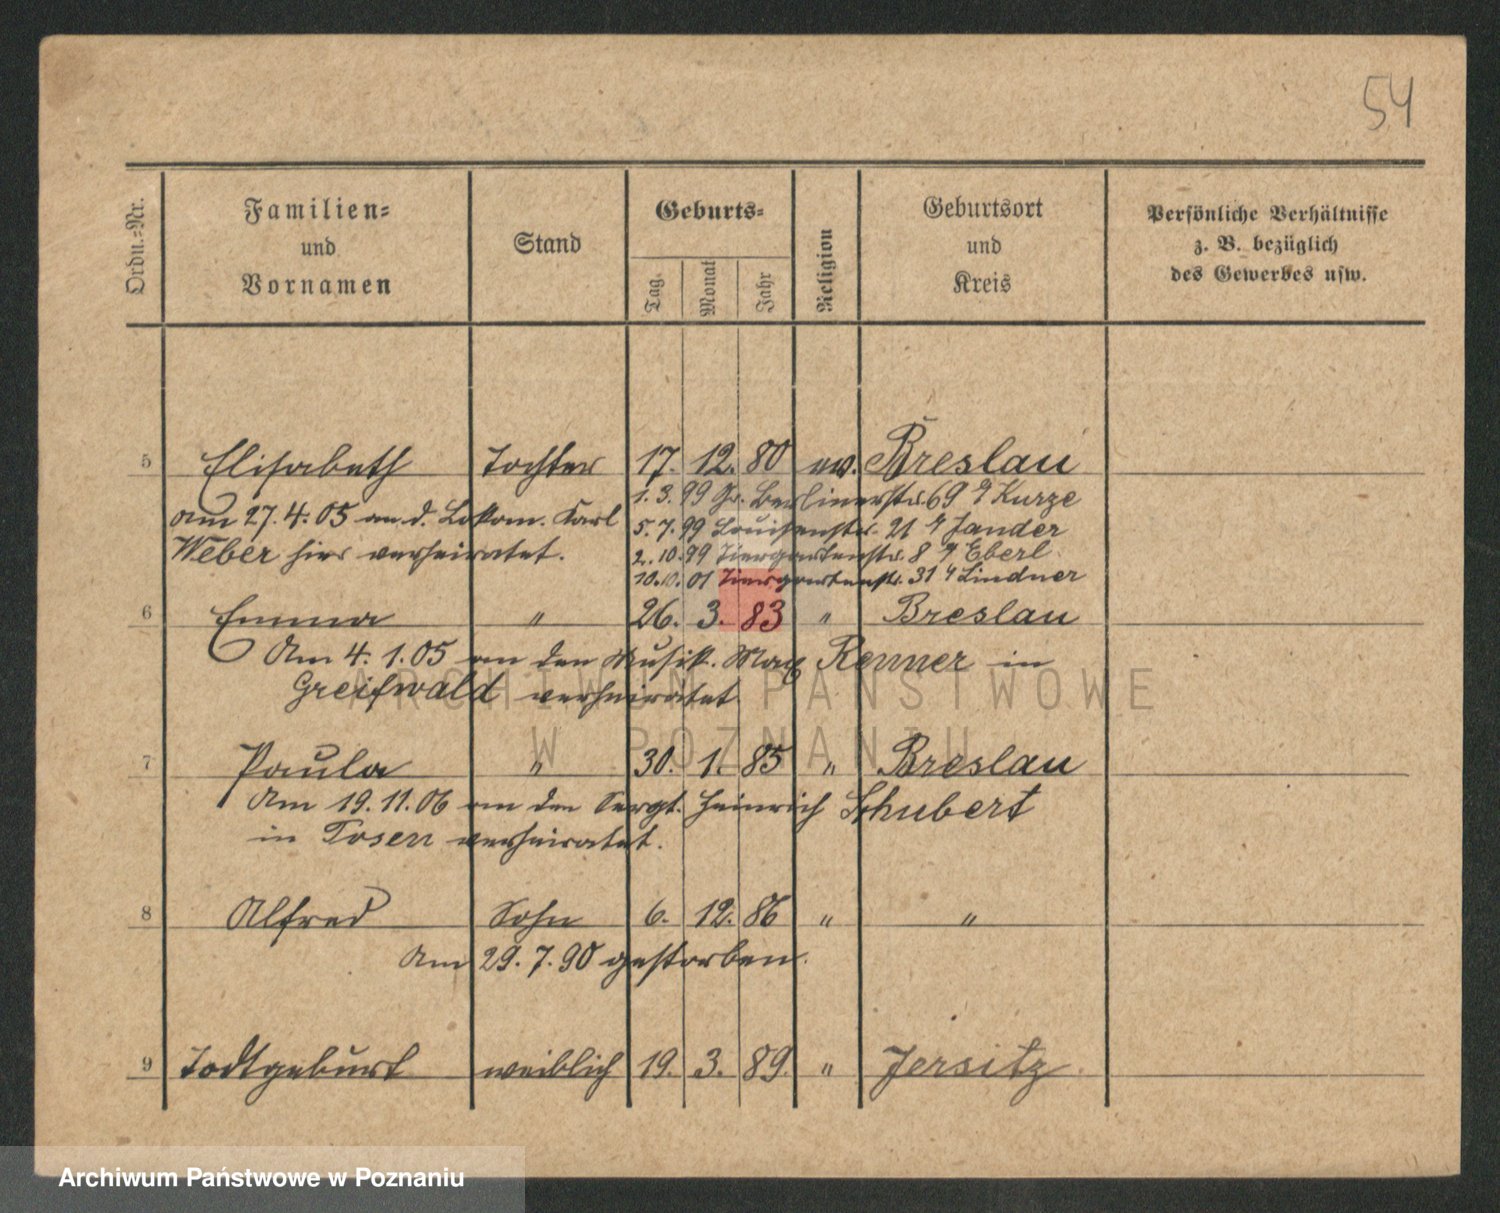 54
Ordn.-Nr.
Familien-
und
Vornamen
Stand
Geburts-
Tag
Monat
Jahr
Religion
Geburtsort
und
Kreis
Persönliche Verhältnisse
z. B. bezüglich
des Gewerbes usw.
5 Elisabeth Tochter 17. 12. 80 ev. Breslau
1. 3. 99 Gr. Berlinerstr. 69 b/ Kurze
am 27. 4. 05 an d. Lokom. Karl
5. 7. 99 Louisenstr. 21 b/ Jander
Weber hier verheiratet.
2. 10. 99 Tiergartenstr. 8 b/ Eberl
10. 10. 01 Tiergartenstr. 31 b/ Lindner
6 Emma " 26. 3. 83 " Breslau
Am 4. 1. 05 an den Musik. Max Renner in
Greifwald verheiratet
7 Paula " 30. 1. 85 " Breslau
Am 19. 11. 06 an den Sergt. Heinrich Schubert
in Posen verheiratet.
8 Alfred Sohn 6. 12. 86 " "
Am 29. 7. 90 gestorben.
9 Todtgeburt weiblich 19. 3. 89. " Jersitz
ARCHIWUM PAŃSTWOWE
W POZNANIU
Archiwum Państwowe w Poznaniu